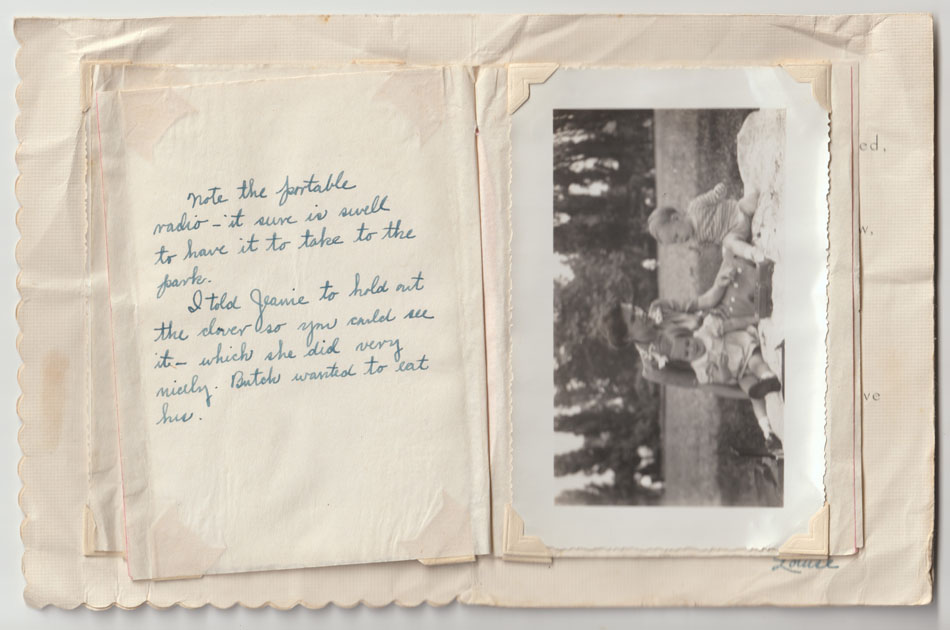 Note the portable
radio – it sure is swell
to have it to take to the
park.
I told Jeanie to hold out
the clover so you could see
it – which she did very
nicely. Butch wanted to eat
his.
ed,
w,
ve
Louise